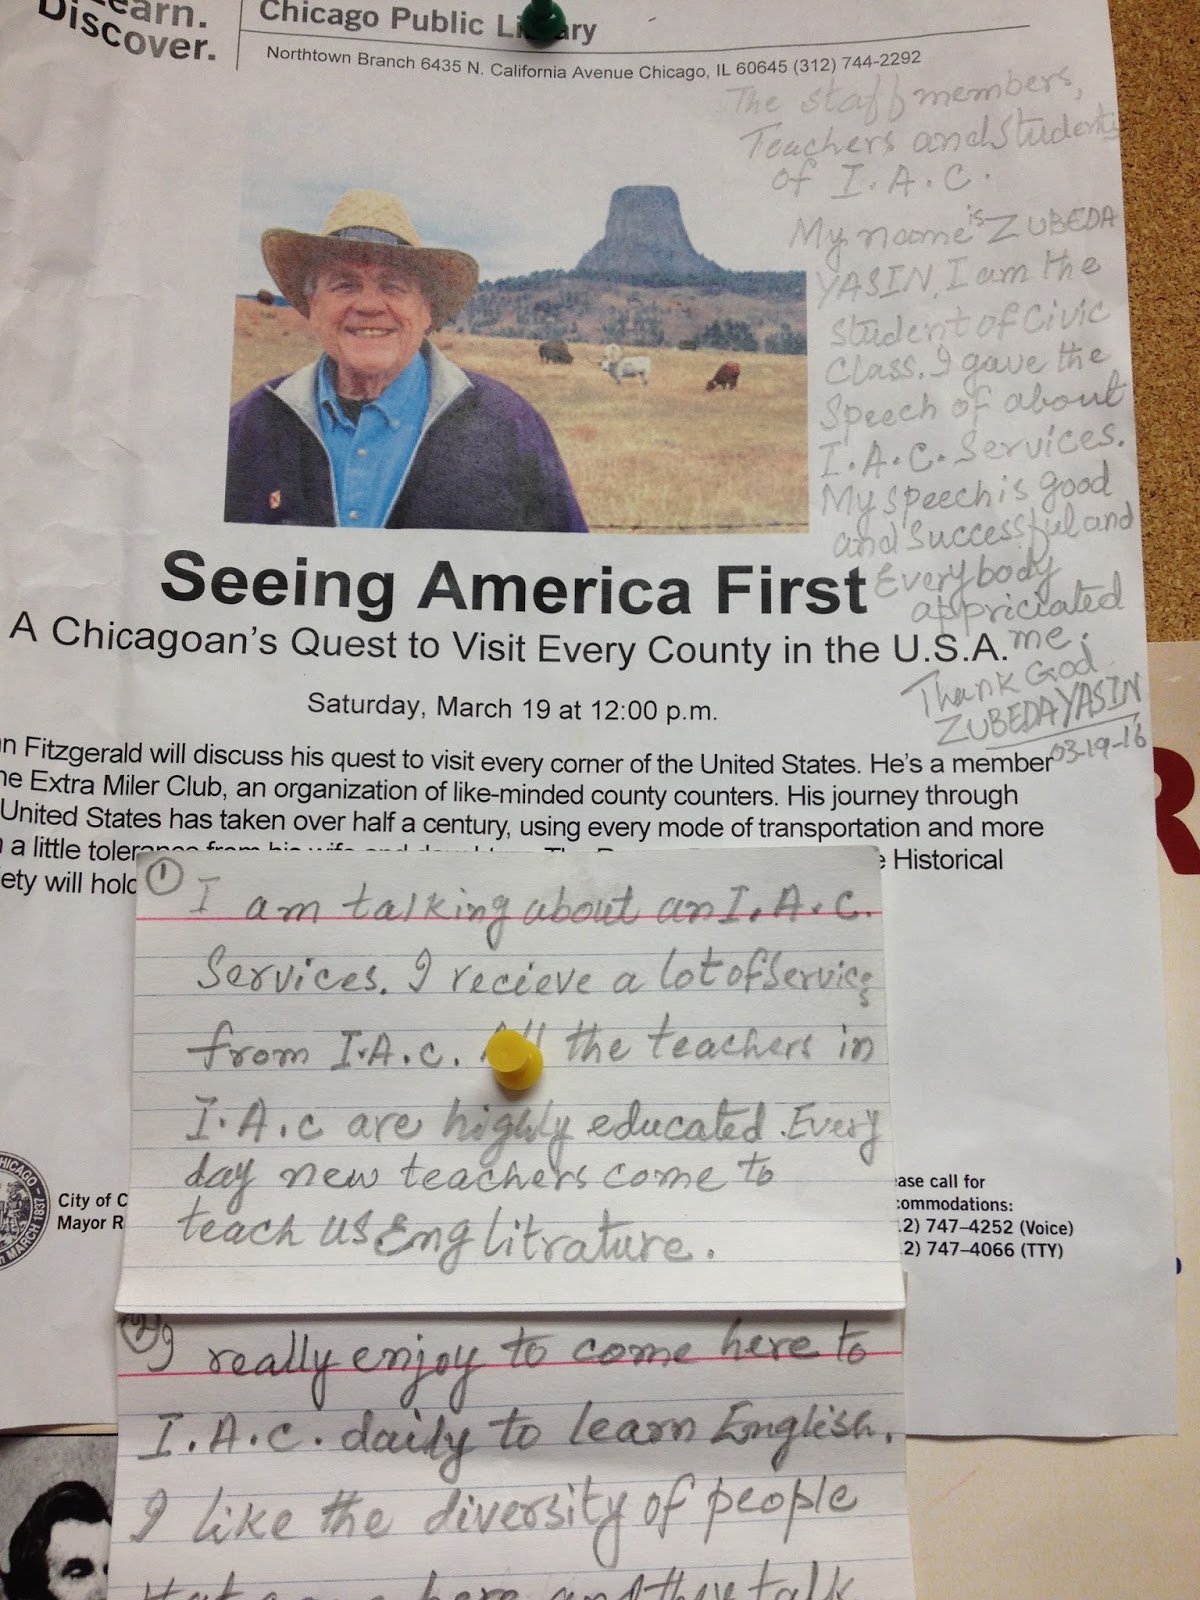 Learn.
Discover.
Chicago Public
Northtown Branch 6435 N. California Avenue Chicago, IL 60645 (312) 744-2292
The staff members,
Teachers and Students
of I.A.C.
My name is ZUBEDA
YASIN. I am the
student of Civic
Class. I gave the
Speech of about
I.A.C. Services.
My speech is good
and Successful and
Everybody
appriciated
me.
Thank God
ZUBEDA YASIN
03-19-16
Seeing America First
A Chicagoan's Quest to Visit Every County in the U.S.A.
Saturday, March 19 at 12:00 p.m.
Fitzgerald will discuss his quest to visit every corner of the United States. He's a member
Extra Miler Club, an organization of like-minded county counters. His journey through
United States has taken over half a century, using every mode of transportation and more
a little tolerance from his wife and
Historical
will
① I am talking about an I.A.C.
Services. I recieve a lot of Services
from I.A.C. All the teachers in
I.A.C are highly educated. Every
day new teachers come to
teach us Eng litrature.
② I really enjoy to come here to
I.A.C. daily to learn English.
I like the diversity of people
here and they talk
CHICAGO
MARCH 1837
City of
Mayor
call for
747–4252 (Voice)
747–4066 (TTY)
R